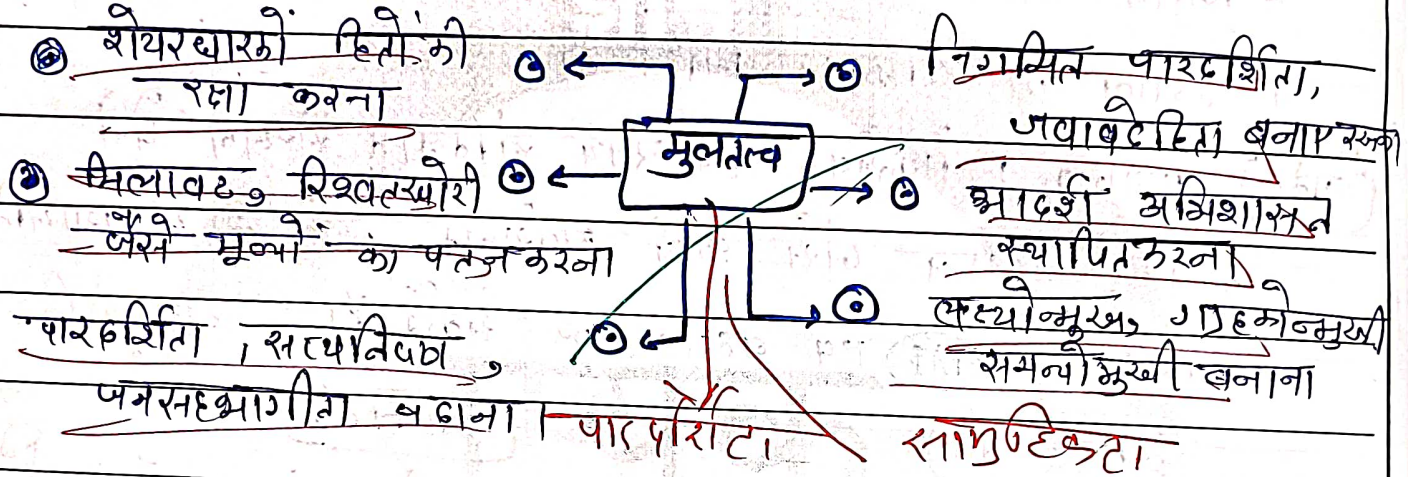 शेयरधारकों हितों की
रक्षा करना
मिलावट, रिश्वतखोरी
जैसे मूल्यों का पतन करना
पारदर्शिता, सत्यनिष्ठा,
जनसहभागीता बढाना।
मुलतत्व
निगमित पारदर्शिता,
जवाबदेहिता बनाए रखना
आदर्श अभिशासन
स्थापित करना
लक्ष्योन्मुख, ग्राहकोन्मुखी
बनाना
पारदर्शिता
सामुहिकता